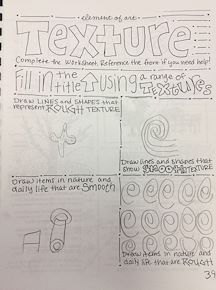 element of art
Texture
Complete the Worksheet. Reference the front if you need help!
Fill in the title ↑ using a range of Textures
Draw LINES and SHAPES that
represent ROUGH TEXTURE
Draw lines and shapes that
show SMOOTH TEXTURE
Draw items in nature and
daily life that are Smooth
Draw items in nature and
daily life that are ROUGH
39